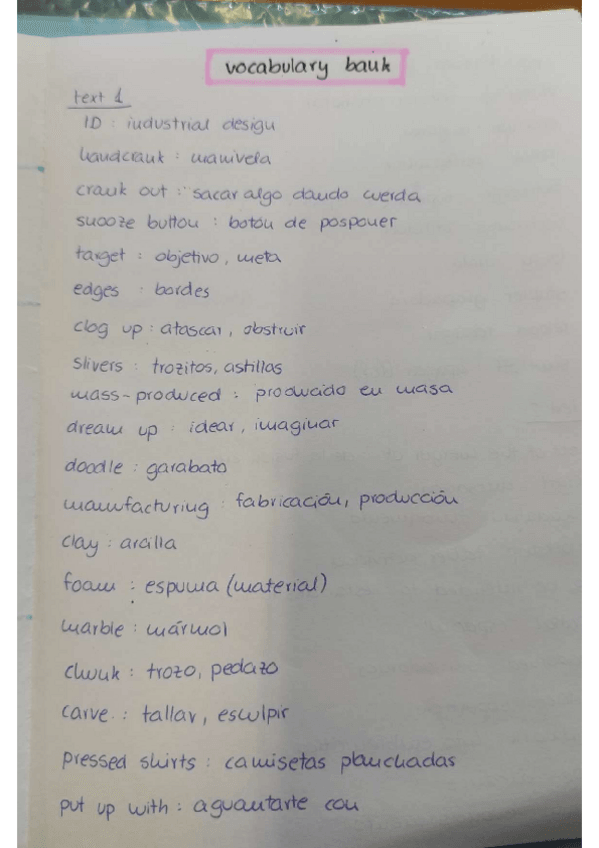 vocabulary bank
text 1
ID : industrial design
handcrank : manivela
crank out : sacar algo dando cuerda
snooze button : botón de posponer
target : objetivo, meta
edges : bordes
clog up : atascar, obstruir
slivers : trozitos, astillas
mass-produced : producido en masa
dream up : idear, imaginar
doodle : garabato
manufacturing : fabricación, producción
clay : arcilla
foam : espuma (material)
marble : mármol
chunk : trozo, pedazo
carve : tallar, esculpir
pressed shirts : camisetas planchadas
put up with : aguantarte con